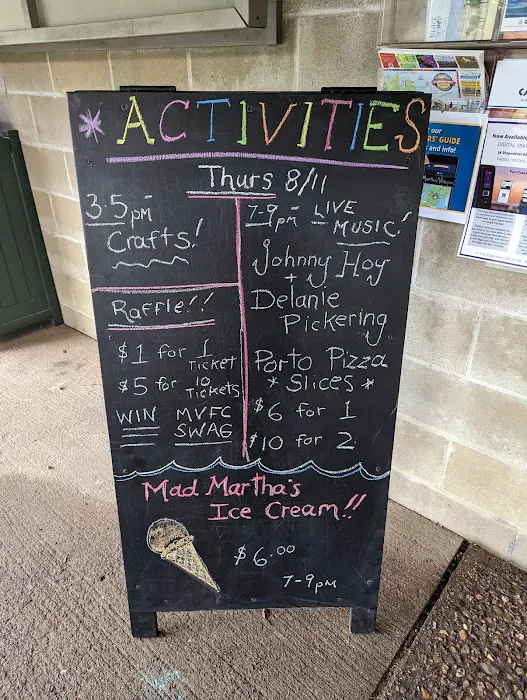 * ACTIVITIES
Thurs 8/11
3-5pm
Crafts!
Raffle!!
$1 for 1
Ticket
$5 for 10
Tickets
WIN MVFC
SWAG
7-9pm - LIVE
MUSIC!
Johnny Hoy
+
Delanie
Pickering
Porto Pizza
* Slices *
$6 for 1
$10 for 2
Mad Martha's
Ice Cream!!
$6.00
7-9pm
GUIDE
and info!
Now Available